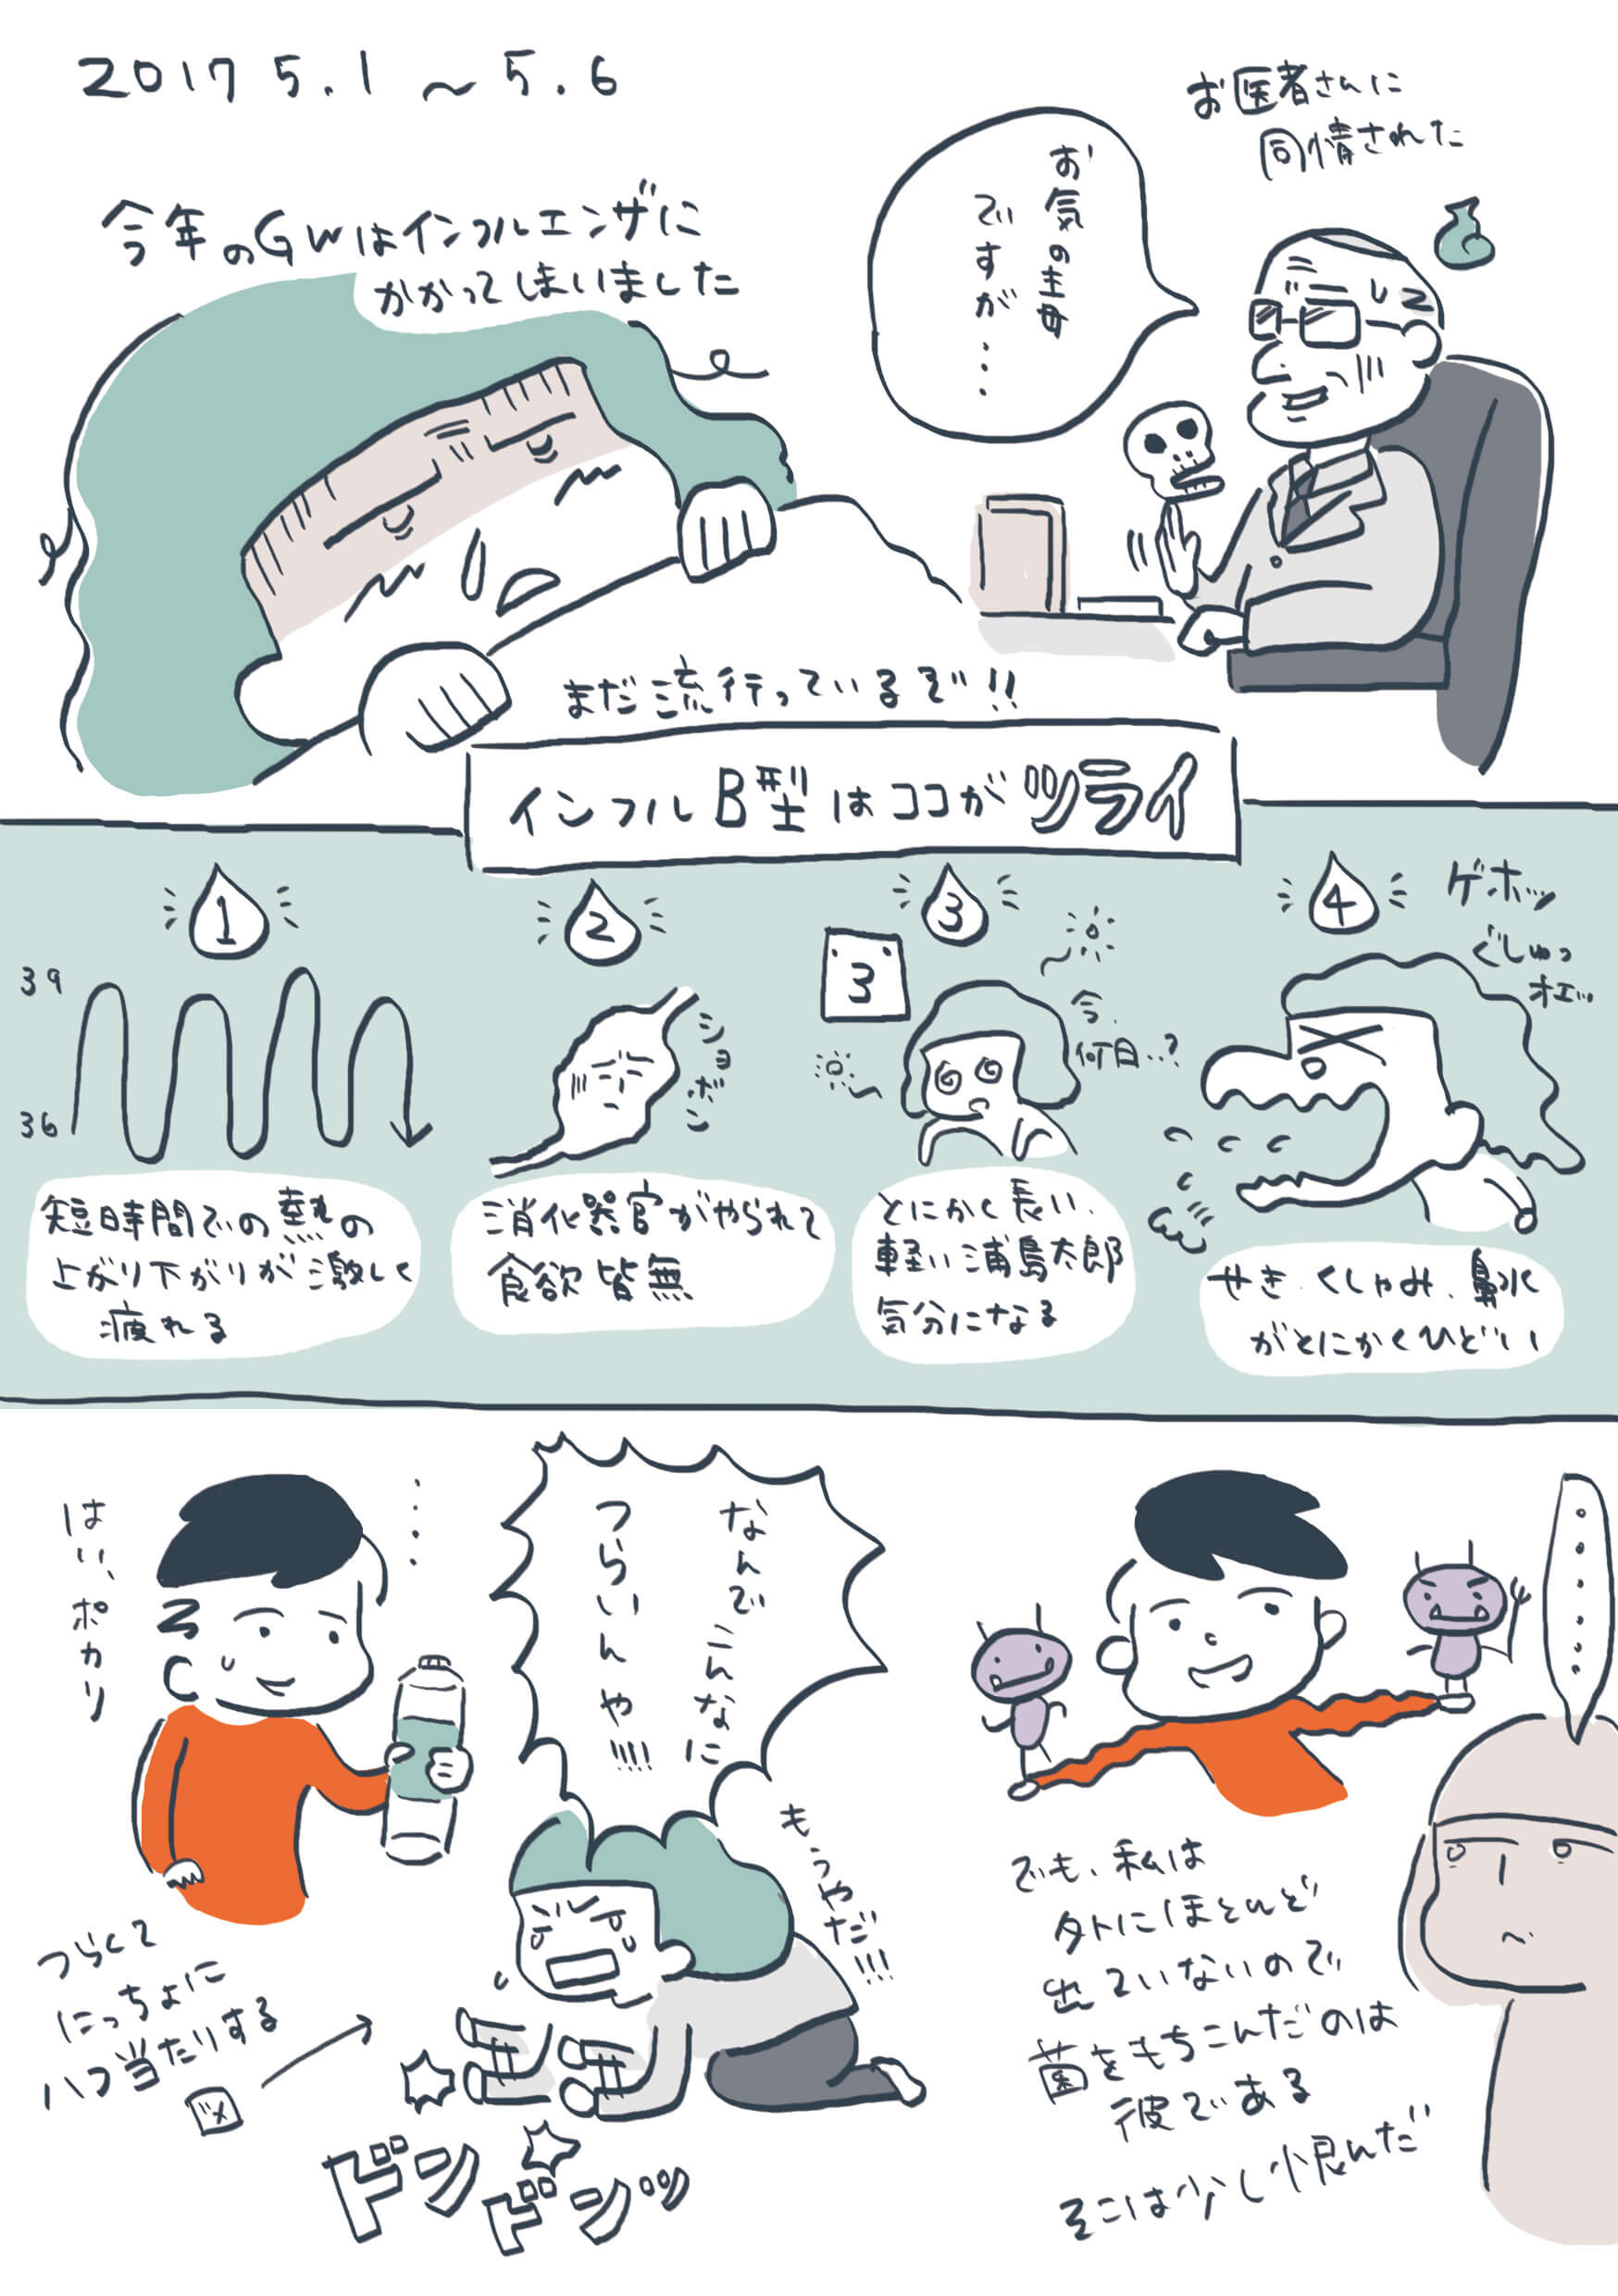 2017 5.1 〜 5.6
今年のGWはインフルエンザに
かかってしまいました
お医者さんに
同情された
お気の毒
ですが...
まだ流行っているぞ!!
インフルB型はココがツライ
1
39
36
短時間での熱の
上がり下がりが激しく
疲れる
2
ションボリ
消化器官がやられて
食欲皆無
3
3
今、
何日...?
とにかく長い、
軽い浦島太郎
気分になる
4
ゲホッ
ぐしゅっ
オエッ
せき、くしゃみ、鼻水
がとにかくひどい
はい、ポカリ
....
なんでこんなに
つらいんや!!!!
もうやだ!!!
つらくて
にっちょに
八つ当たりする
図
ドンドンッ
.....
でも、私は
外にほとんど
出ていないので
菌をもちこんだのは
彼である
そこは少し恨んだ